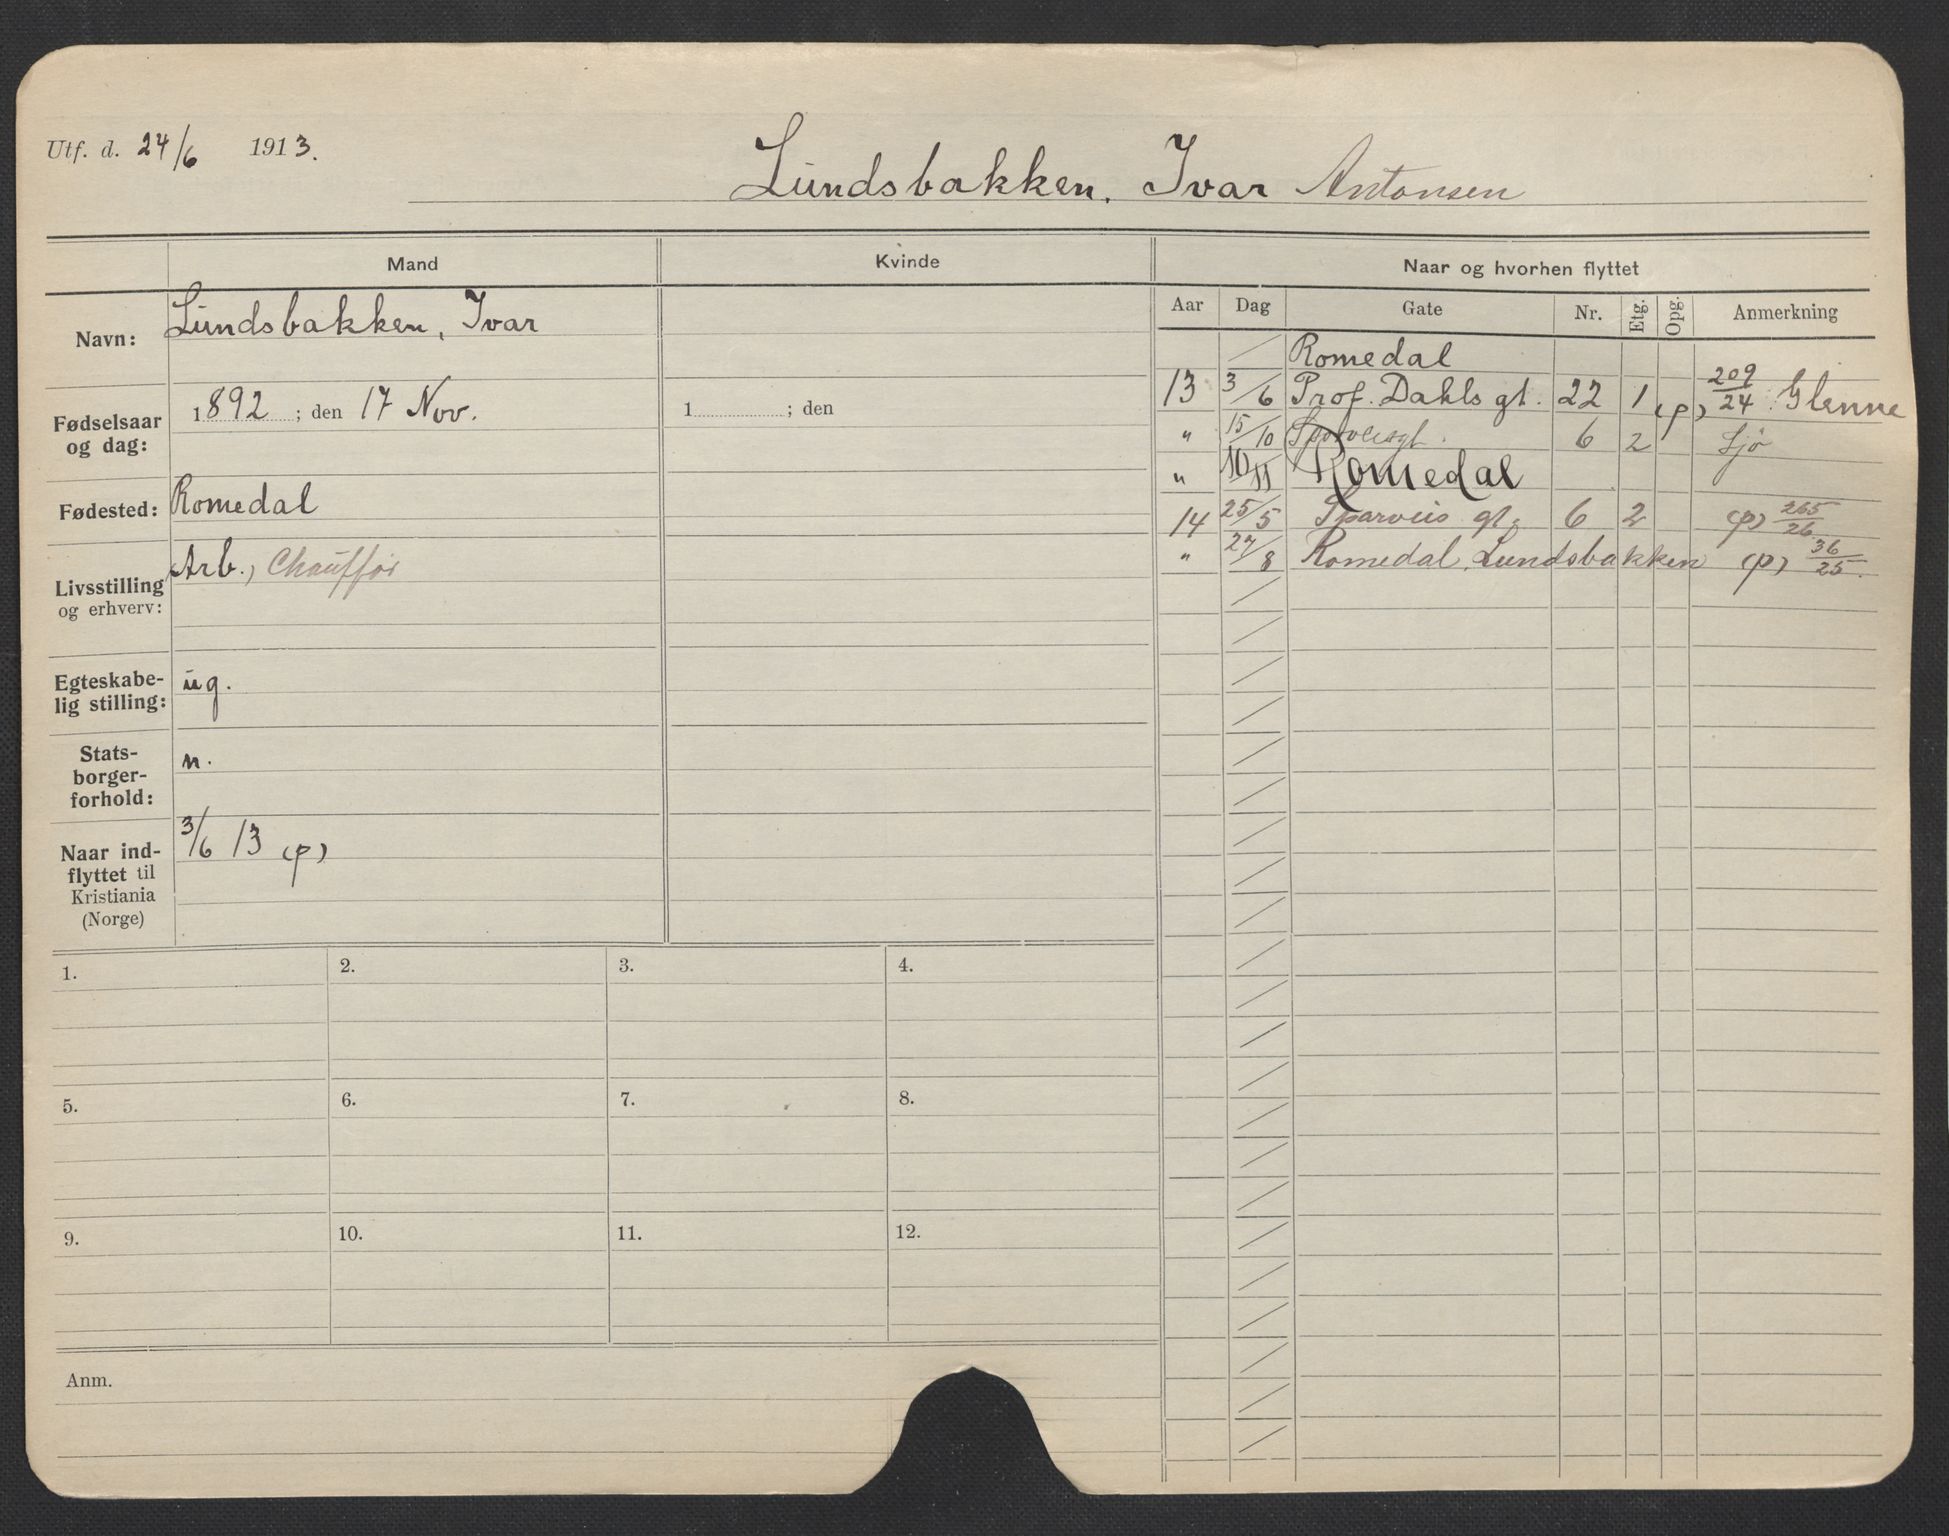 Utf. d. 24/6 1913.
Lundsbakken, Ivar Antonsen
Mand
Kvinde
Naar og hvorhen flyttet
Aar Dag Gate Nr. Etg. Opg. Anmerkning
Navn: Lundsbakken, Ivar
Fødselsaar og dag: 1892 ; den 17 Nov.
1 ; den
Fødested: Romedal
Livsstilling og erhverv: Arb., Chauffør
Egteskabe-
lig stilling: ug.
Stats-
borger-
forhold: n.
Naar ind-
flyttet til
Kristiania
(Norge)
3/6 13 (p)
Romedal
13 3/6 Prof. Dahls gt. 22 1 (p) 209/24 Glenne
" 15/10 Sporveisgt. 6 2 Sjø
" 10/11 Romedal
14 25/5 Sparveis gt. 6 2 (p) 265/26
" 27/8 Romedal, Lundsbakken (p) 36/25.
1.
2.
3.
4.
5.
6.
7.
8.
9.
10.
11.
12.
Anm.